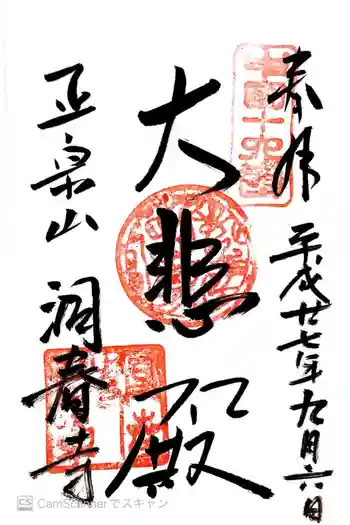 奉拝
平成廿七年九月六日
大悲殿
正泉山
洞春寺
CS CamScanner でスキャン